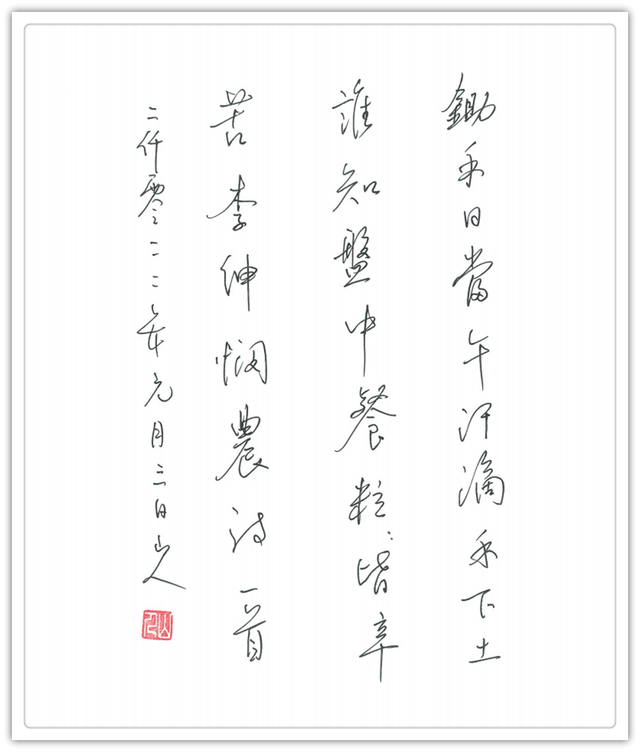 鋤禾日當午汗滴禾下土
誰知盤中餐粒々皆辛
苦李绅悯農诗一首
二仟零二二年元月三日山人
山人